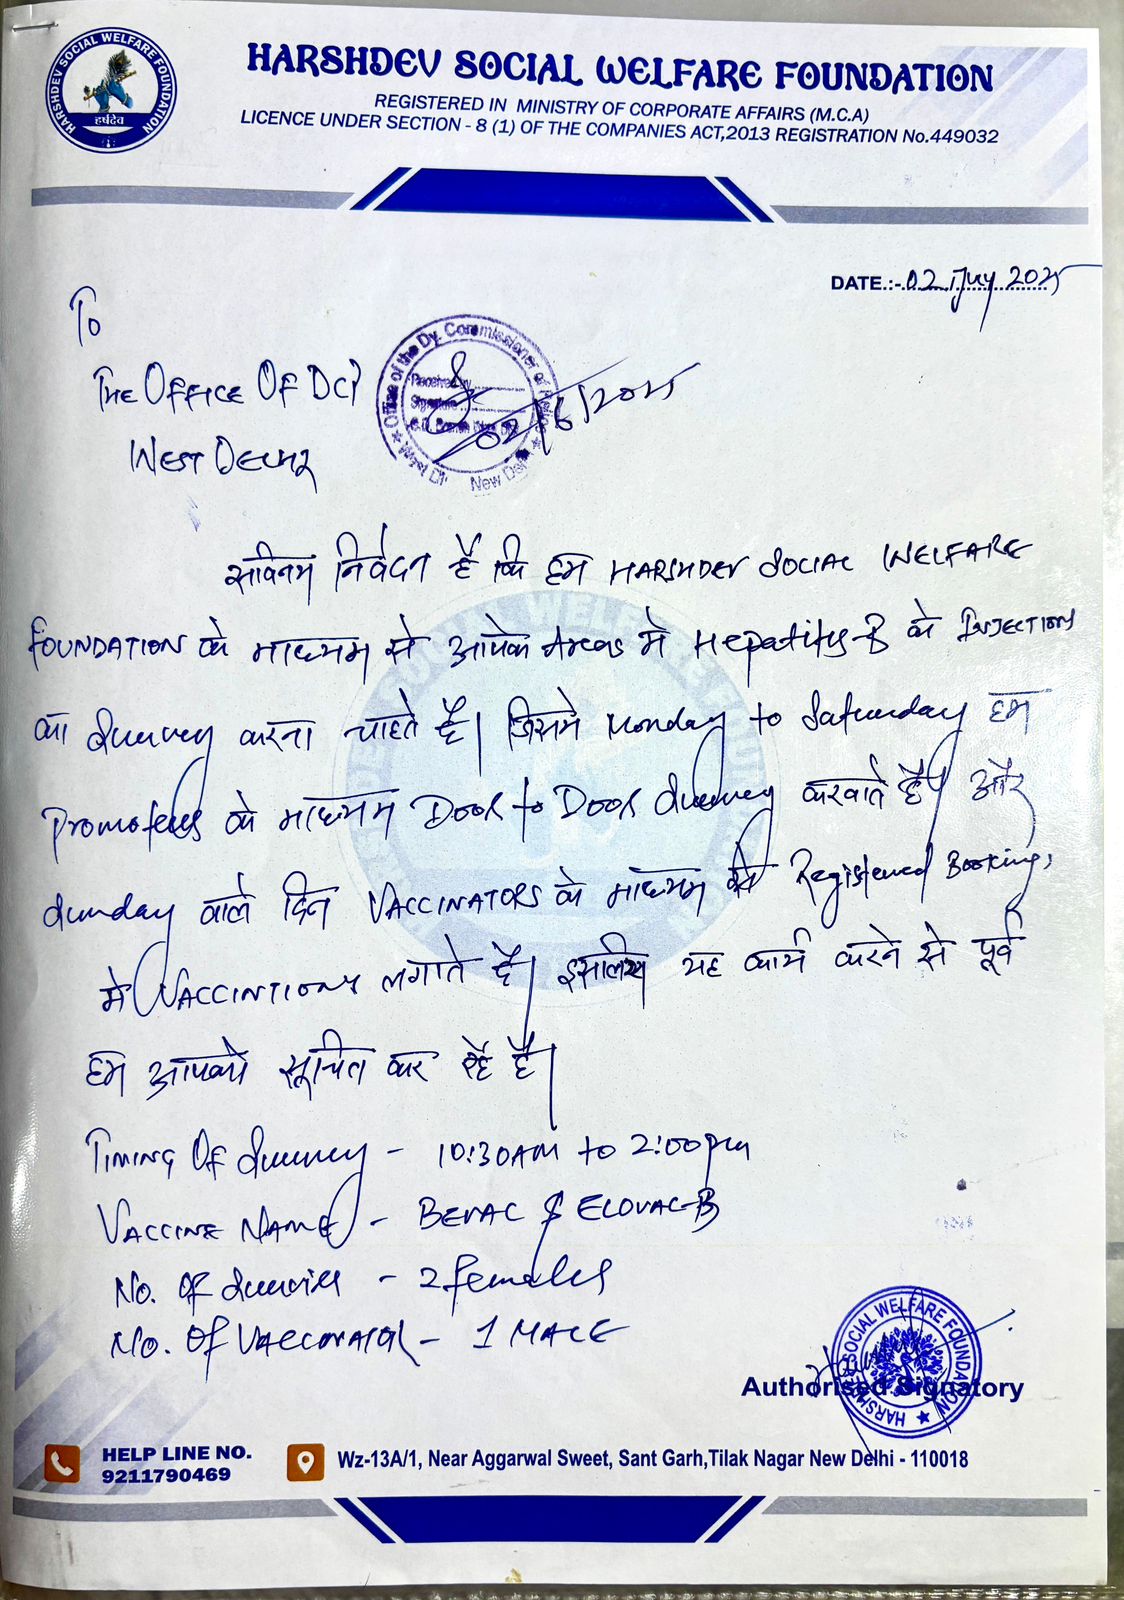 HARSHDEV SOCIAL WELFARE FOUNDATION
हर्षदेव
HARSHDEV SOCIAL WELFARE FOUNDATION
REGISTERED IN MINISTRY OF CORPORATE AFFAIRS (M.C.A)
LICENCE UNDER SECTION - 8 (1) OF THE COMPANIES ACT,2013 REGISTRATION No.449032
DATE.:- 02 July 2025
To
THE OFFICE OF DCP
WEST DELHI
Office of the Dy. Commissioner of
Received by
Signature
West New Delhi
02/6/2025
सविनय निवेदन है कि हम HARSHDEV SOCIAL WELFARE
FOUNDATION के माध्यम से आपके Areas मे Hepatity-B के INJECTION
का Survey करना चाहते है। जिसमे Monday to Saturday हम
Promoters के माध्यम Door to Door Survey करवाते है। और
Sunday वाले दिन VACCINATORS के माध्यम से Registered Booking
मे VACCINTIONS लगाते है। इसलिए यह कार्य करने से पूर्व
हम आपको सूचित कर रहे है।
TIMING Of Survey - 10:30AM to 2:00pm
VACCINE NAME - BEVAC & ELOVAC-B
No. Of - 2 females
No. Of - 1 MALE
HARSHDEV SOCIAL WELFARE FOUNDATION
Authorised Signatory
HELP LINE NO.
9211790469
Wz-13A/1, Near Aggarwal Sweet, Sant Garh,Tilak Nagar New Delhi - 110018